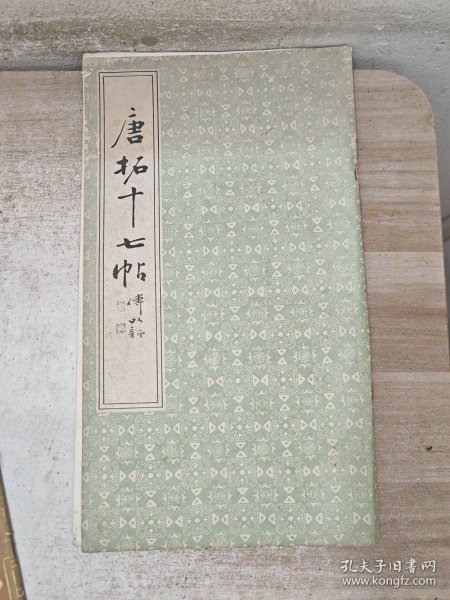 唐拓十七帖
傅以新
孔夫子旧书网
www.kongfz.com